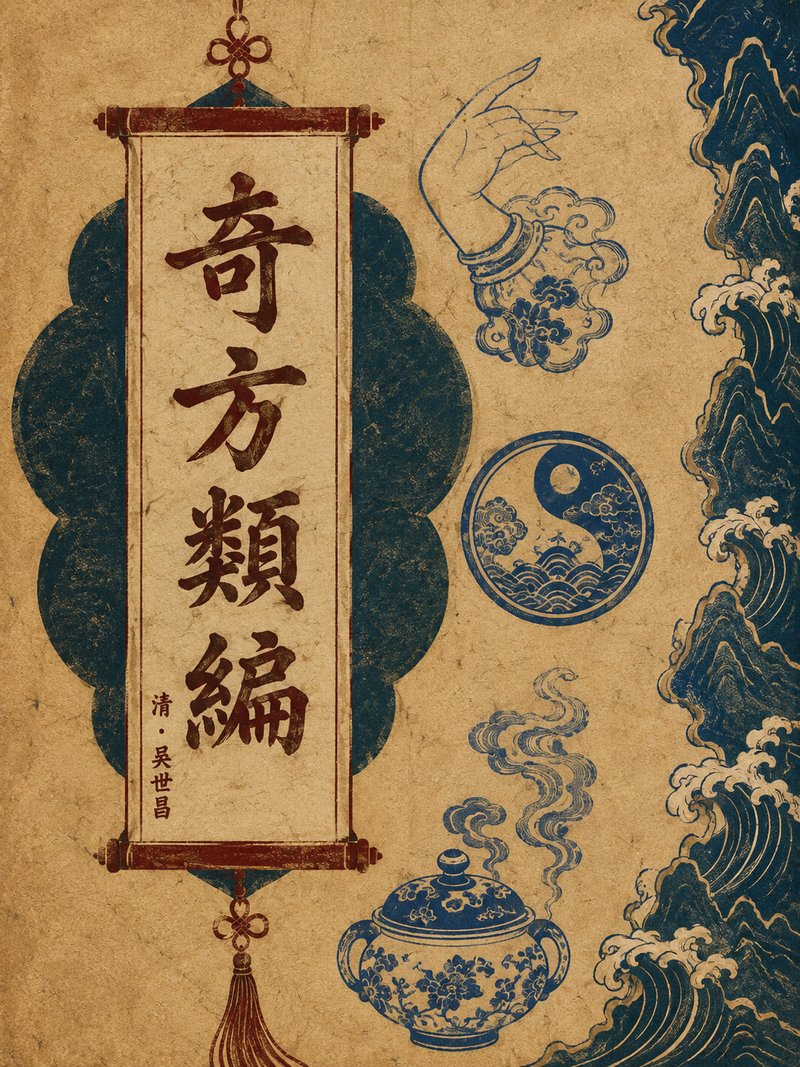 奇方類編
清·吳世昌